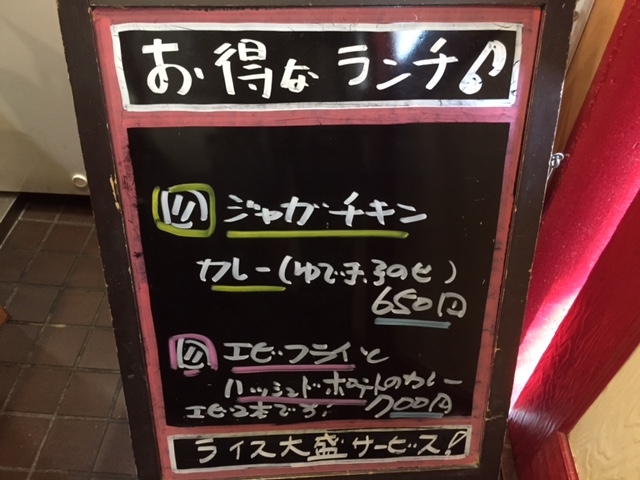 お得なランチ♪
ジャガチキン
カレー(ゆで玉子のせ)
650円
エビフライと
ハッシュドポテトのカレー
エビ2本です! 700円
ライス大盛サービス!